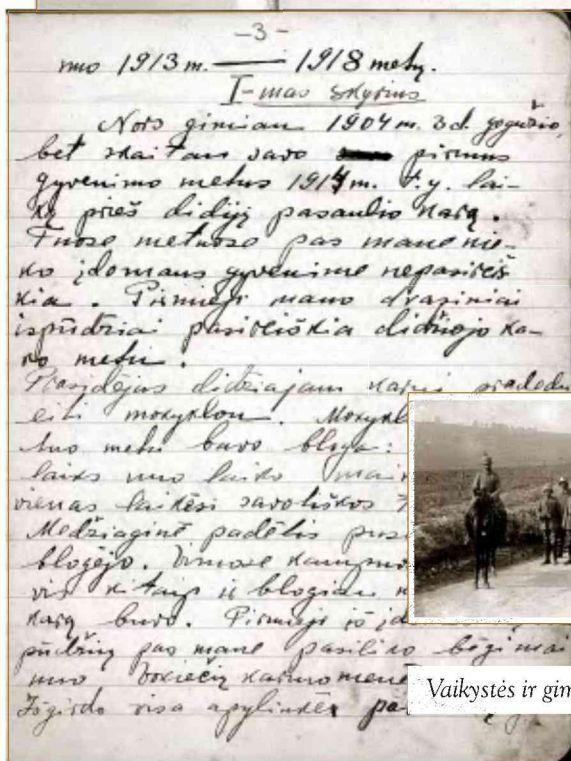 –3–
nuo 1913 m. —— 1918 metų.
I-mas skyrius
Nors gimiau 1904 m. 3 d. gegužio,
bet skaitau savo pirmus
gyvenimo metus 1914 m. t.y. lai-
ką prieš didįjį pasaulio karą.
Tuose metuose pas mane nie-
ko įdomaus gyvenime nepasireiš
kia. Pirmieji mano dvasiniai
ispūdžiai pasireiškia didžiojo ka-
ro metu.
Prasidėjus didžiajam karui pradedu
eiti mokyklon.
tuo metu buvo bloga:
laiks nuo laiko
vienas laikėsi savotiškos
Medžiaginė padėtis
blogėjo. Visuose
vis kitaip ir blogiau
karą buvo. Pirmieji iš
pūdžių pas mane pasiliko bėgimai
nuo Vokiečių
Išgirdo visa apylinkė
Vaikystės ir gim